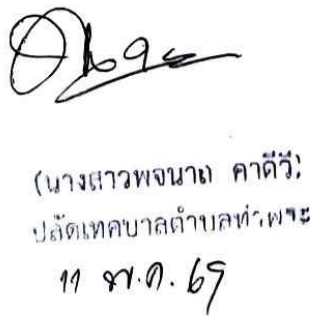 (นางสาวพจนาถ คาดีวี)
ปลัดเทศบาลตำบลท่าพระ
11 พ.ค. 69